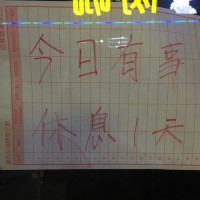 今日有事
休息1天